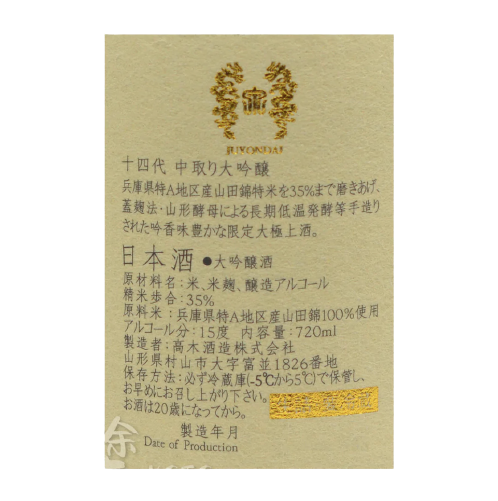 JUYONDAI
十四代 中取り大吟醸
兵庫県特A地区産山田錦特米を35%まで磨きあげ、
蓋麹法・山形酵母による長期低温発酵等手造り
された吟香味豊かな限定大極上酒。
日本酒 ●大吟醸酒
原材料名：米、米麹、醸造アルコール
精米歩合：35%
原料米：兵庫県特A地区産山田錦100%使用
アルコール分：15度 内容量：720ml
製造者：高木酒造株式会社
山形県村山市大字富並1826番地
保存方法：必ず冷蔵庫(-5℃から5℃)で保管し、
お早めにお召し上がり下さい。
お酒は20歳になってから。
製造年月
Date of Production